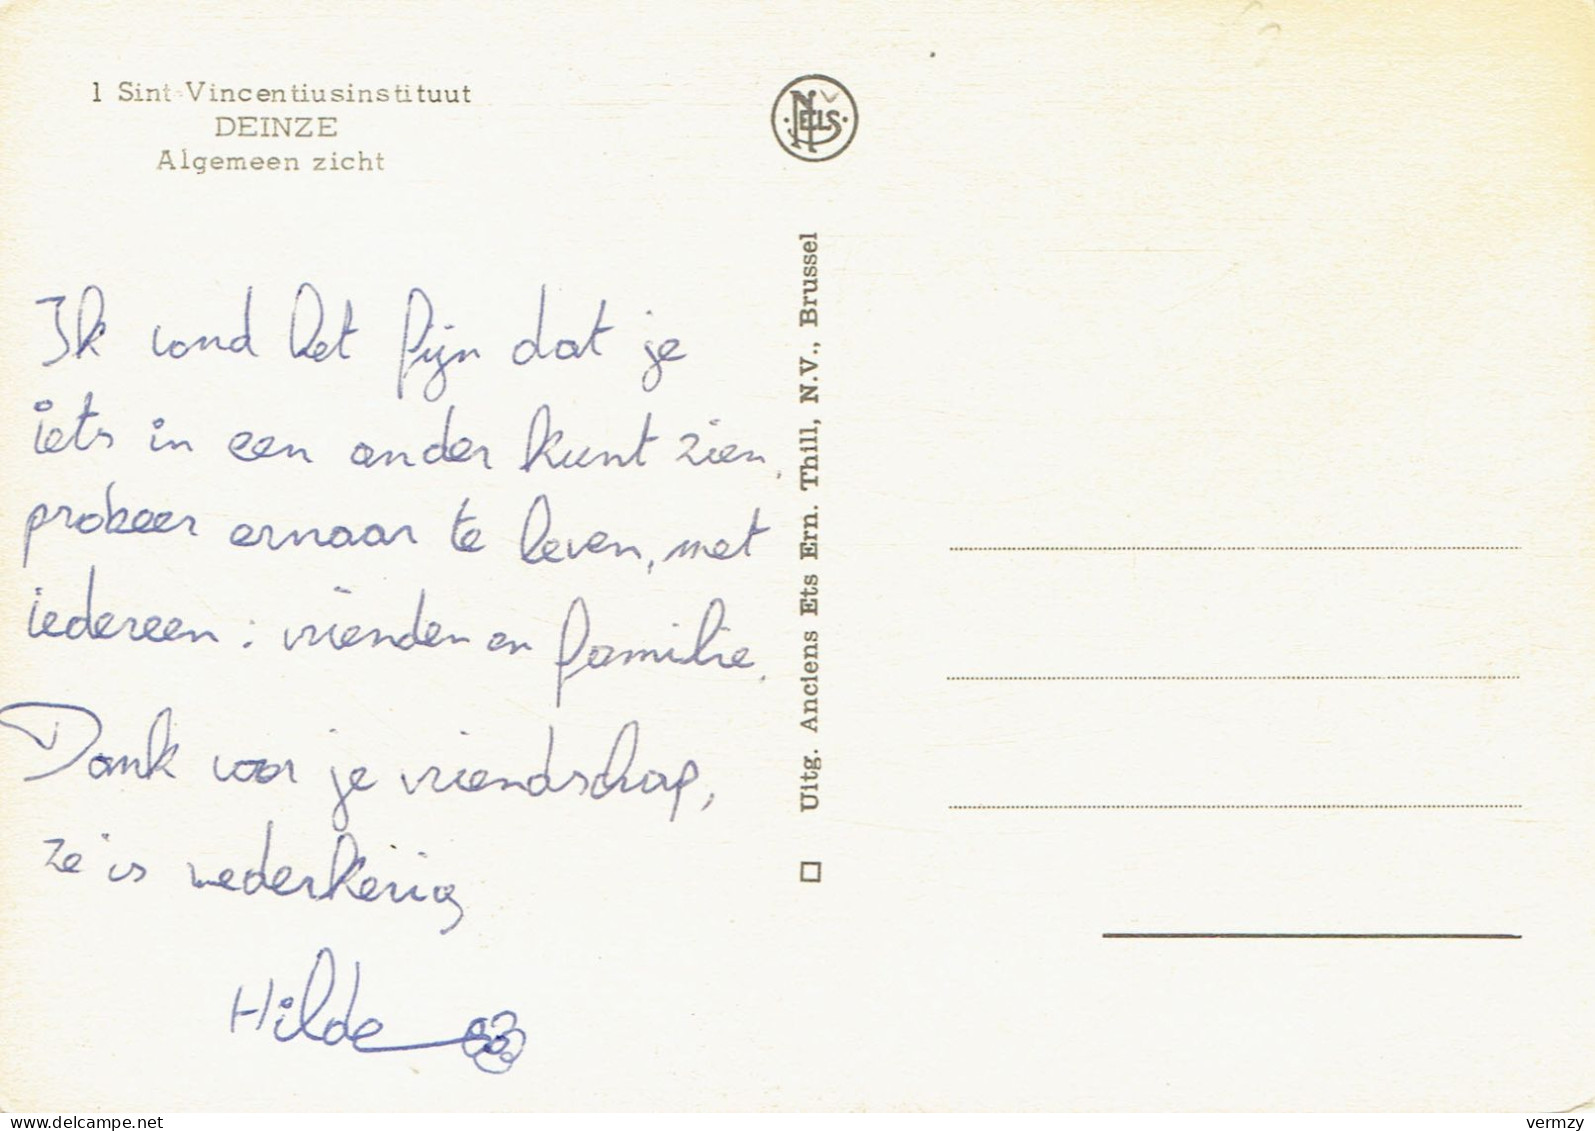 1 Sint-Vincentiusinstituut
DEINZE
Algemeen zicht
NELS
Ik vond het fijn dat je
iets in een ander kunt zien,
probeer ernaar te leven, met
iedereen : vrienden en familie.
Dank voor je vriendschap,
ze is wederkerig
Hilde
Uitg. Anciens Ets Ern. Thill, N.V., Brussel
www.delcampe.net
vermzy